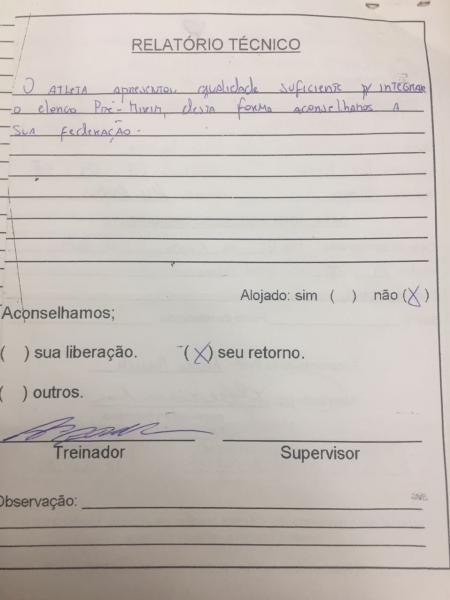 RELATÓRIO TÉCNICO
O ATLETA APRESENTOU QUALIDADE SUFICIENTE P/ INTEGRAR
O ELENCO PRÉ-MIRIM, DESTA FORMA ACONSELHAMOS A
SUA FEDERAÇÃO.
Alojado: sim ( ) não (X)
Aconselhamos;
( ) sua liberação. (X) seu retorno.
( ) outros.
Treinador Supervisor
Observação: